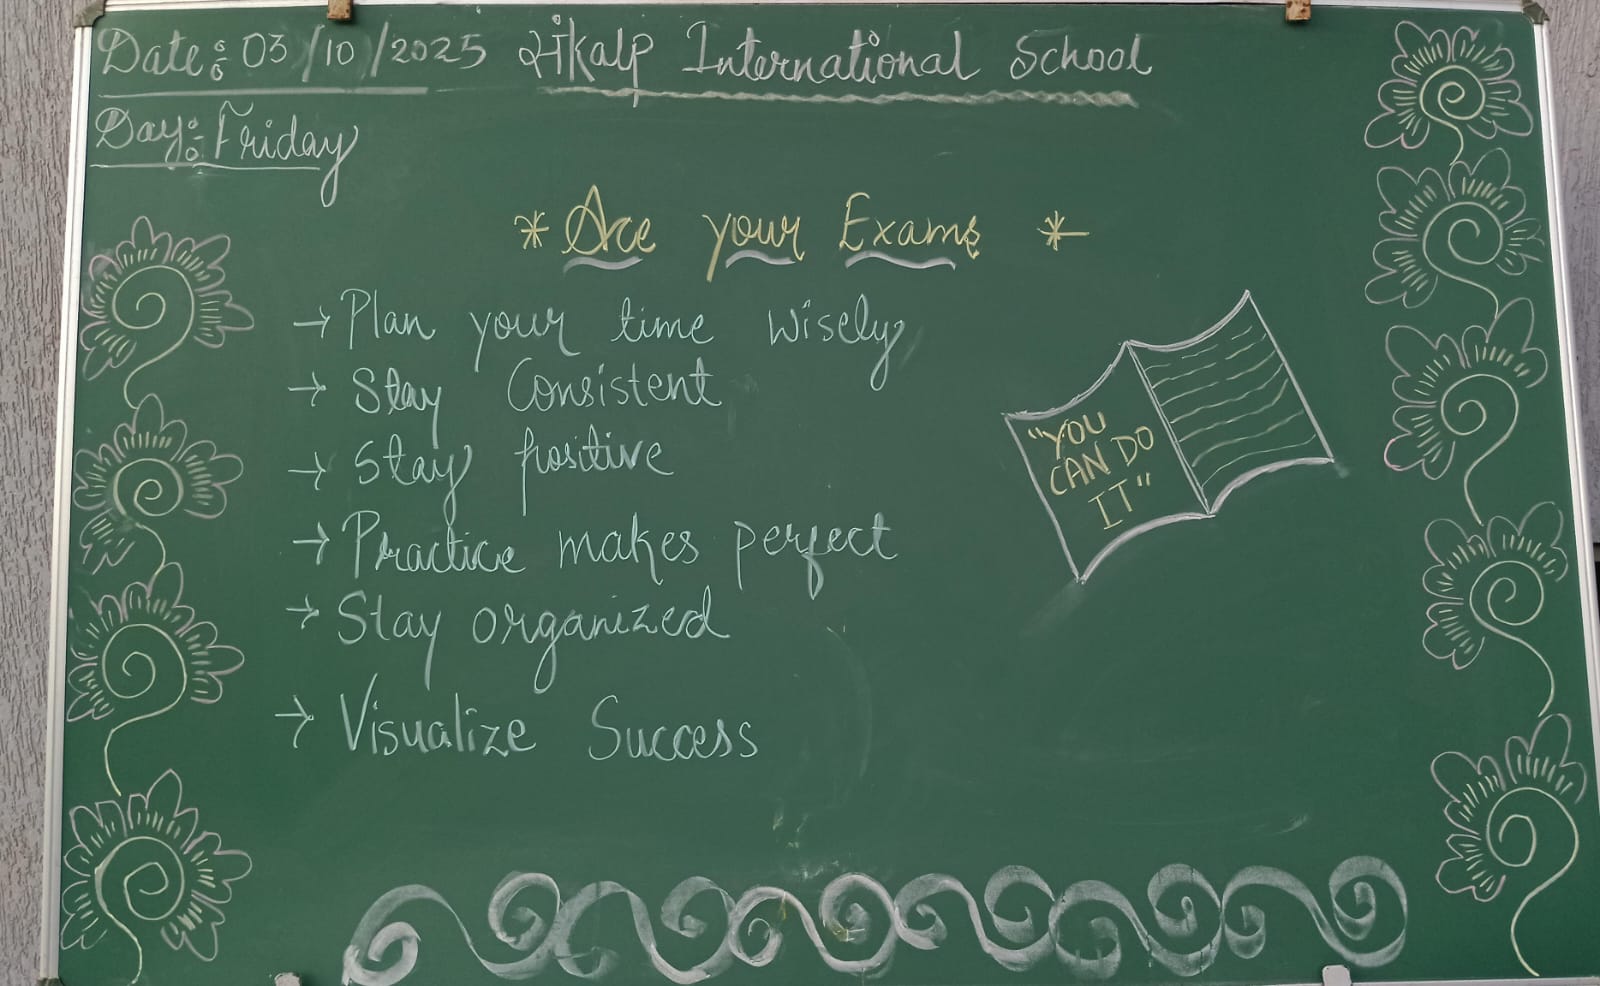 Date: 03/10/2025 International School
Day: Friday
* Ace your Exams *
→ Plan your time wisely
→ Stay Consistent
→ Stay positive
→ Practice makes perfect
→ Stay organized
→ Visualize Success
"YOU
CAN DO
IT"